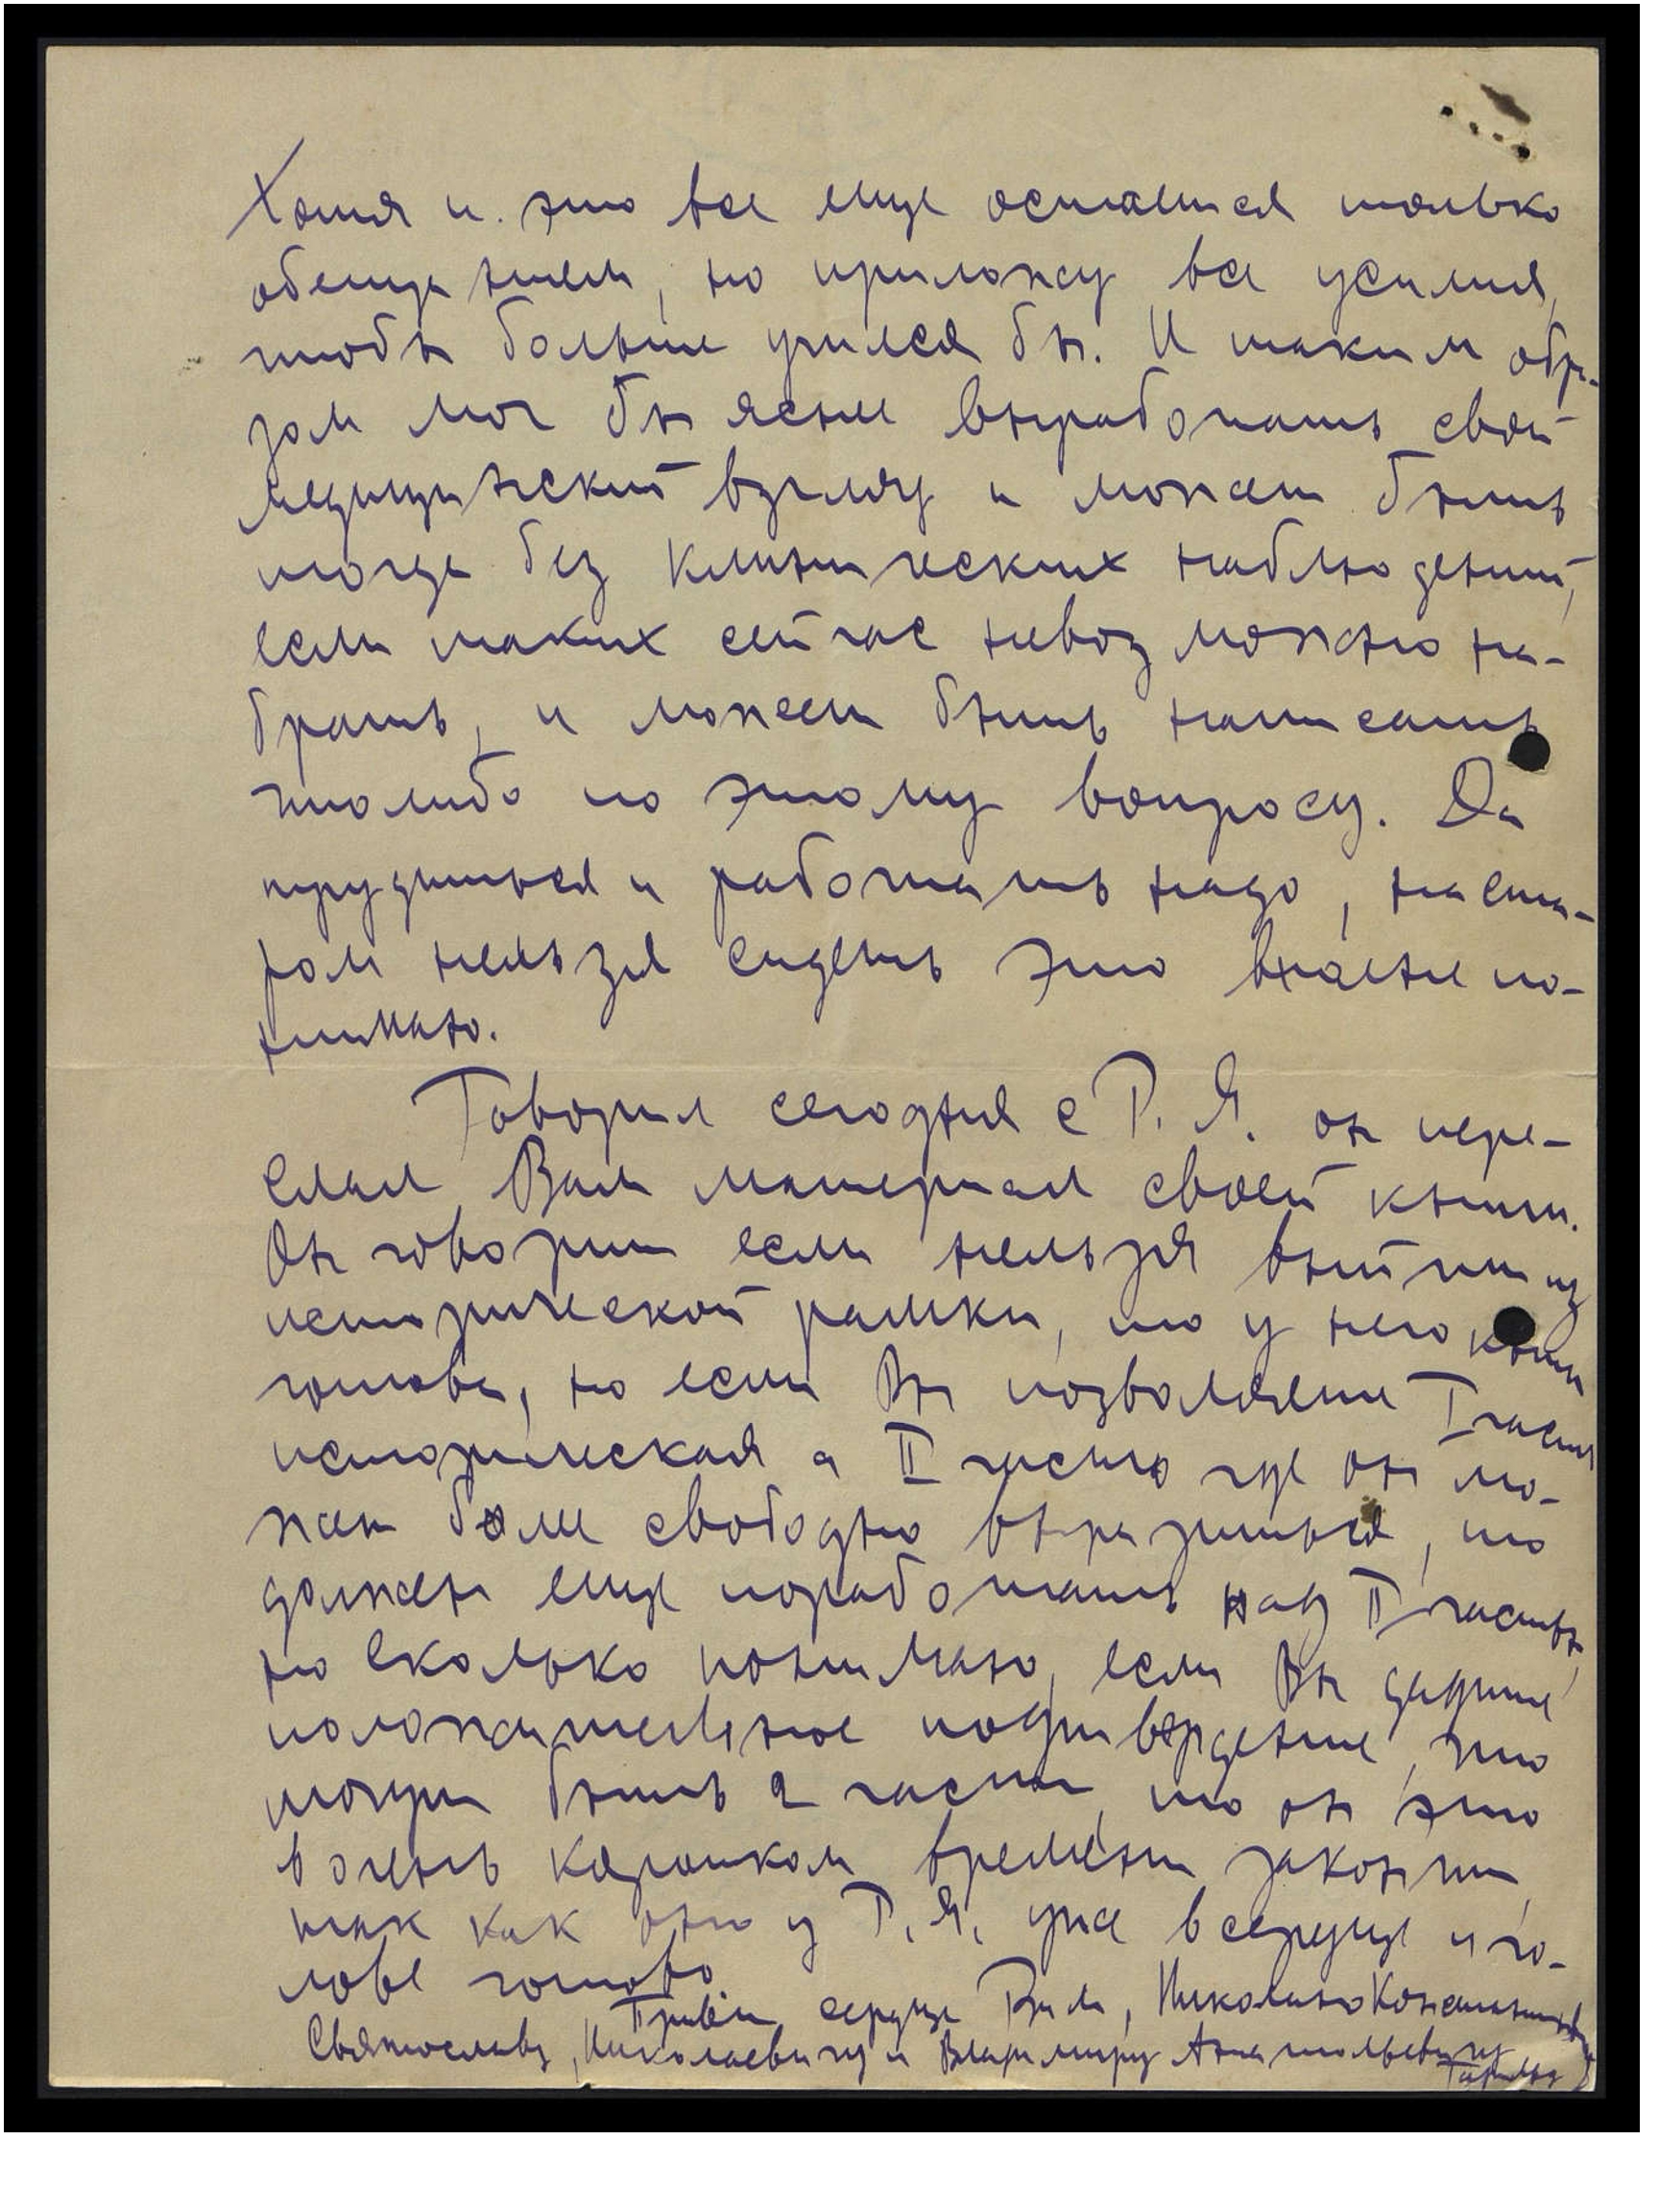 Хотя и это все еще остается только
обещанием, но приложу все усилия,
чтобы больше учился бы. И таким обра-
зом мог бы яснее выработать свой
медицинский взгляд и может быть
тогда без клинических наблюдений,
если таких сейчас невозможно на-
брать, и может быть написать
чтолибо по этому вопросу. Да
трудиться и работать надо, на ста-
ром нельзя сидеть это вполне по-
нимаю.
Говорил сегодня с Р. Я. он пере-
слал Вам материал своей книги.
Он говорит если нельзя выйти из
исторической рамки, то у него книга
готова, но если Вы позволяете I часть
историческая а II частью где он мо-
жет боле свободно выразиться, то
должен еще поработать над II частью,
но сколько понимаю, если Вы дадите
положительное подтверждение, что
могут быть 2 части, то он это
в очень коротком времени закончит,
так как оно у Р. Я. уже в сердце и го-
лове готово
Привет сердца Вам, Николаю Константиновичу
Святославу, Николаевичу и Владимиру Анатольевичу